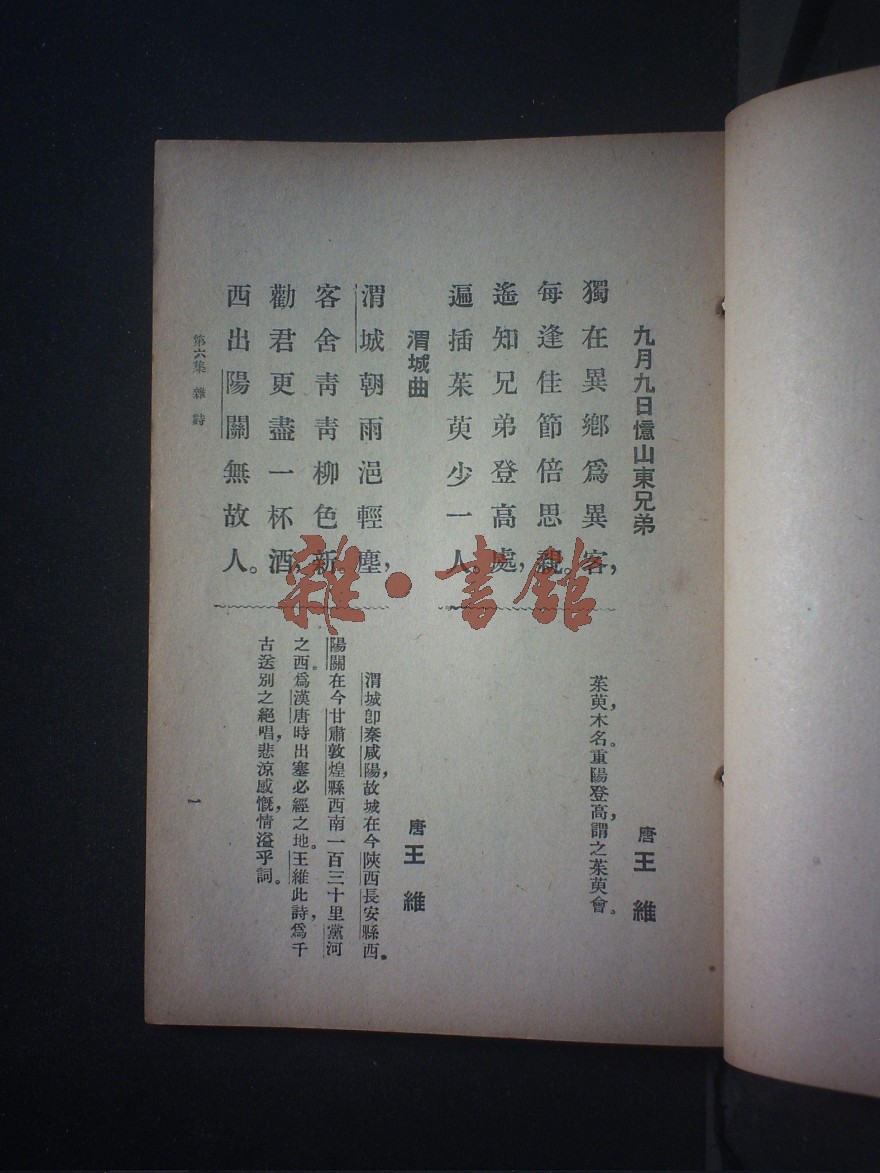 九月九日憶山東兄弟
唐 王維
獨在異鄉為異客，
每逢佳節倍思親。
遙知兄弟登高處，
遍插茱萸少一人。
茱萸，木名。重陽登高，謂之茱萸會。
渭城曲
唐 王維
渭城朝雨浥輕塵，
客舍靑靑柳色新。
勸君更盡一杯酒，
西出陽關無故人。
渭城卽秦咸陽，故城在今陝西長安縣西。
陽關在今甘肅敦煌縣西南一百三十里黨河
之西。為漢唐時出塞必經之地。王維此詩，為千
古送別之絕唱，悲涼感慨，情溢乎詞。
第六集 雜詩
一
雜·書館